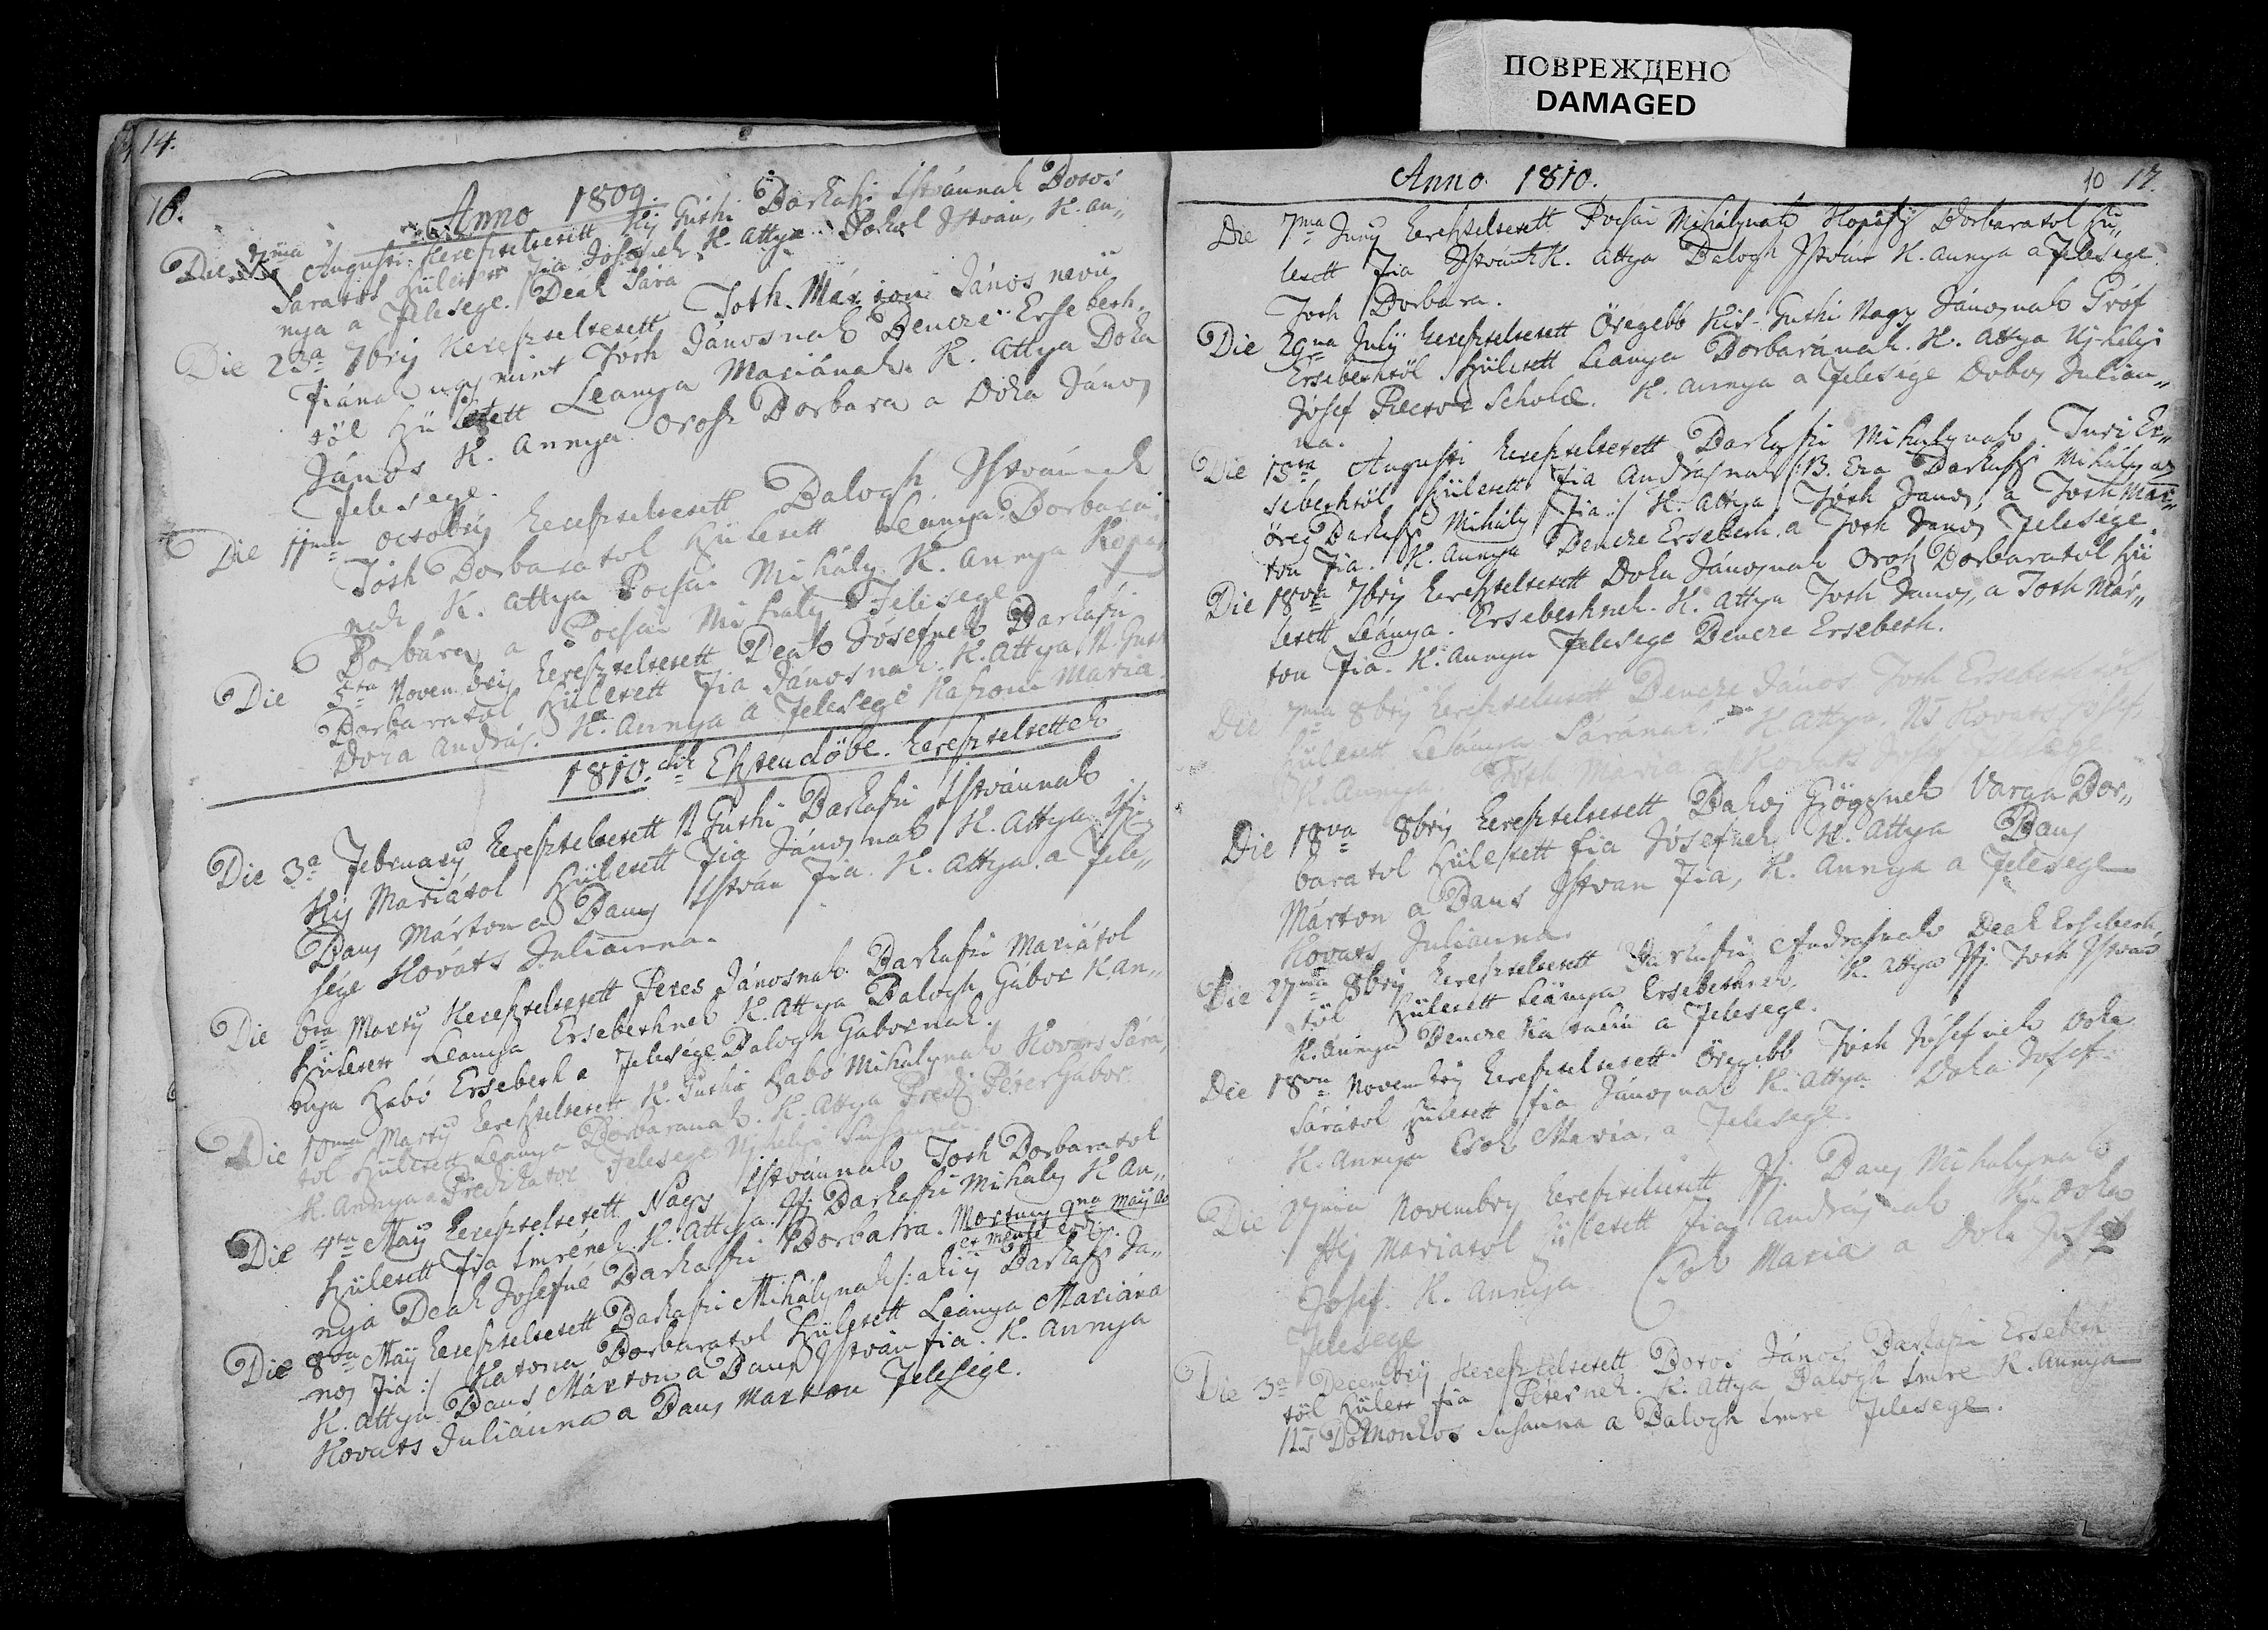 ПОВРЕЖДЕНО
DAMAGED
14.
16.
Anno 1809.
Die 7ma Augusti Kereszteltetett Kis Guthi Barkaszi Istvánnak Boros
Saratol Születet Fia Josefnek K. Attya Balog István, K. An„
nya a Felesege Deák Sára
Die 23a 7bris Kereszteltetett Toth Márton János nevü
Fiának ugymint Tóth Jánosnak Bencze Ersebeth„
töl Született Leanya Mariának. K. Attya Doka
János K. Annya Orosz Borbara a Doka János
Felesege.
Die 11ma Octobris Kereszteltetett Balogh Istvánnak
Tóth Borbaratol Született Leanya Borbará„
nak K. Attya Pocsai Mihály K. Annya Kopás
Borbára a Pocsai Mihaly Felesege
Die Novembris Kereszteltetett Deák Jósefnek Barkaszi
Borbaratol Született Fia Jánosnak. K. Attya N. Guth
Dora András. K. Annya a Felesege Katona Maria.
1810.dik Esztendöbe Kereszteltettek
Die 3a February Kereszteltetett N Guthi Barkaszi Istvánnak
Kis Mariátol Született Fia Jánosnak K. Attya Ifj.
Bany Márton a Bany István Fia. K. Attya a Fele„
sége Kováts Julianna.
Die 6ta Marty Kereszteltetett Peres Jánosnak Barkaszi Mariátol
Születet Leanya Ersebethnek K. Attya Balogh Gabor K An„
nya Szabó Ersebeth a Felesége Balogh Gabornak.
Die 10ma Marty Kereszteltetett K. Guthi Szabó Mihalynak Kovats Sára„
tol Született Leanya Borbaranak. K. Attya Predik Péter Gabor.
K. Annya a Predikator Felesege Ujhelyi Susanna.
Die 4ta May Kereszteltetett Nagy Istvánnak Toth Borbaratol
Született Fia Imrének. K. Attya Ifj Barkaszi Mihaly K An„
nya Deak Josefné Barkaszi Borbara. Mortuus 9na May Ao
et mense eod.
Die 8va May Kereszteltetett Barkaszi Mihálynak /: a kis Barkasz Já„
nos Fia :/ Katona Borbaratol Született Leánya Mariána
K. Attya Bans Márton a Bans István fia. K. Annya
Kovats Juliánna a Bans Marton Felesége.
Anno 1810.
10 17.
Die 7ma Juny Kereszteltetett Pocsai Mihálynak Kopász Borbaratol Szü„
letett Fia Istvánk K. Attya Balogh István K. Annya a Felesege
Toth Borbára.
Die 29na July Kereszteltetett Öregebb Kis-Guthi Nagy Jánosnak Gróf
Ersebethtöl Született Leanya Borbarának. K. Attya Uj-helyi
Jósef Rector Scholæ. K. Annya a Felesége Dobos Julian„
na.
Die 15ta Augusti Kereszteltetett Barkaszi Mihalynak Turi Er„
sebethtöl Született Fia Andrasnak /: B. Era Barkasz Mihály az
öreg Barkasz Mihály Fia :/ K. Attya Tóth Janos, a Toth Már„
ton Fia. K. Annya Bencze Ersebeth a Toth Janos Felesége
Die 18va 7bris Kereszteltetett Doka Jánosnak Orosz Borbaratol Szü
letett Leánya Ersebethnek. K. Attya Toth Janos, a Toth Már„
ton Fia. K. Annya Felesege Bencze Ersebeth.
Die 7ma 8bris Kereszteltetett Bencze János Toth Ersebethtöl
Született Leánya Sárának K Attya Ns Kovats Josef,
K. Annya Toth Maria a Kovats Josef Felesege
Die 18va 8bris Kereszteltetett Bakos Györgynek Varga Bor„
baratol Született fia Jósefnek K. Attya Bans
Márton a Bans Istvan Fia, K. Annya a Felesege
Kovats Julianna.
Die 27ma 8bris Kereszteltetett Barkaszi Andrasnak Deak Ersebeth„
töl Született Leánya Ersebethnek. K. Attya Ifj. Toth István
K. Annya Bencze Katalin a Felesege.
Die 18va Novembris Kereszteltetett Öregebb Toth Jósefnek Doka
Sárátol Született fia Jánosnak K. Attya Doka Josef
K. Annya Csok Maria, a Felesege.
Die 27ma Novembris Kereszteltetett Ifj. Bans Mihalynak
Kis Mariatol Született Fia Andrásnak K. Doka
Josef. K. Annya Csok Maria a Doka Josef
Felesege
Die 3a Decembris Kereszteltetett Boros János Barkaszi Ersebeth
töl Születt fia Péternek. K. Attya Balogh Imre K. Annya
Ns Domonkos Susanna a Balogh Imre Felesege.